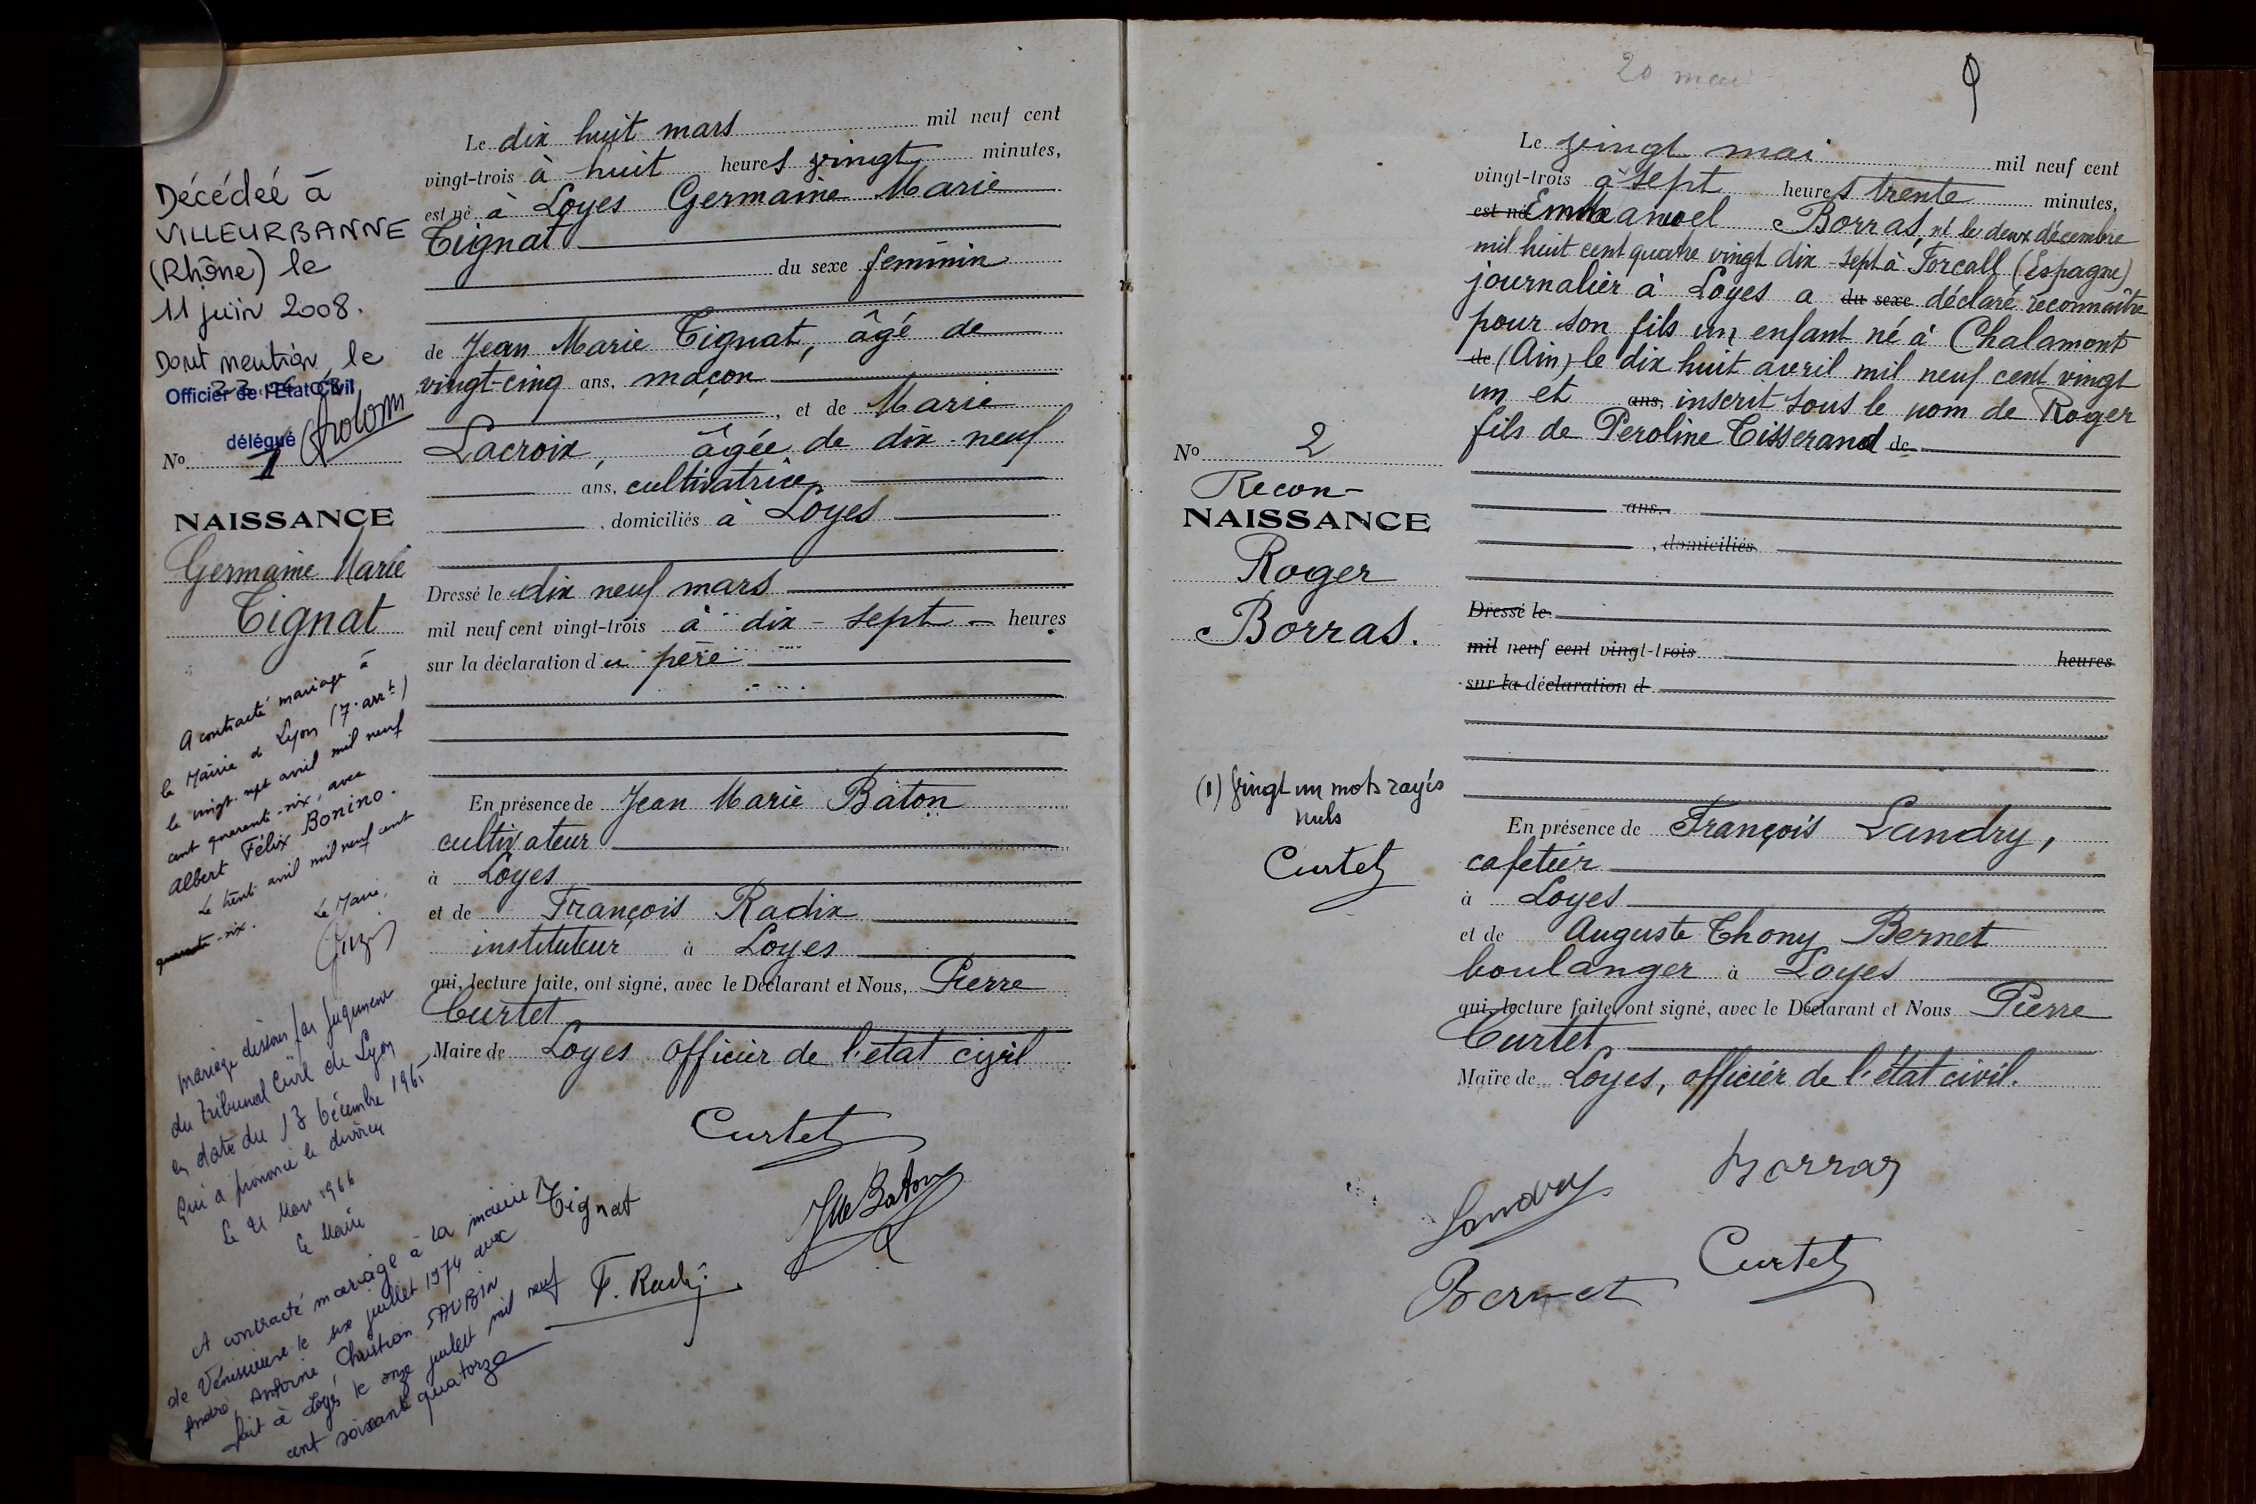 Décédeé à
VILLEURBANNE
(Rhône) le
11 juin 2008.
Dont mention, le
Officier de l'Etat Civil
délégué
No 1
NAISSANCE
Germaine Marie
Tignat
A contracté mariage à
la Mairie de Lyon (7e arrt)
le vingt-sept avril mil neuf
cent quarante-six, avec
Albert Félix Bonino.
Le trente avril mil neuf cent
quarante-six. Le Maire,
Mariage dissous par jugement
du Tribunal Civil de Lyon
en date du 13 Décembre 1965
qui a prononcé le divorce
Le 21 Mars 1966
Le Maire
A contracté mariage à la mairie
de Vénissieux le six juillet 1974 avec
André, Antoine, Christian SAUBIN
fait à Loyes le onze juillet mil neuf
cent soixante quatorze
Le dix huit mars mil neuf cent
vingt-trois à huit heures vingt minutes,
est né à Loyes Germaine Marie
Tignat
du sexe féminin
de Jean Marie Tignat, âgé de
vingt-cinq ans, maçon
, et de Marie
Lacroix, âgée de dix-neuf
ans, cultivatrice
, domiciliés à Loyes
Dressé le dix neuf mars
mil neuf cent vingt-trois à dix-sept heures
sur la déclaration du père
En présence de Jean Marie Baton
cultivateur
à Loyes
et de François Radix
instituteur à Loyes
qui, lecture faite, ont signé, avec le Déclarant et Nous, Pierre
Curtet
Maire de Loyes officier de l'état civil
Curtet
Tignat
JM Baton
F. Radix
20 mai
9
No 2
Recon-
NAISSANCE
Roger
Borras.
(1) vingt un mots rayés
nuls
Curtet
Le vingt mai mil neuf cent
vingt-trois à sept heures trente minutes,
est né Emmanuel Borras, né le deux décembre
mil huit cent quatre vingt dix-sept à Forcall (Espagne)
journalier à Loyes a du sexe déclaré reconnaître
pour son fils un enfant né à Chalamont
de (Ain) le dix huit avril mil neuf cent vingt
un et ans, inscrit sous le nom de Roger
fils de Peroline Tisserand de
ans,
, domiciliés
Dressé le
mil neuf cent vingt-trois heures
sur la déclaration d
En présence de François Landry,
cafetier
à Loyes
et de Auguste Thony Bernet
boulanger à Loyes
qui, lecture faite, ont signé, avec le Déclarant et Nous Pierre
Curtet
Maire de Loyes, officier de l'état civil.
Landry
Borras
Bernet
Curtet